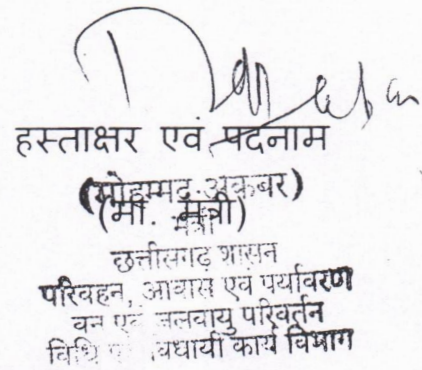 हस्ताक्षर एवं पदनाम
(मोहम्मद अकबर)
(मा. मंत्री)
मंत्री
छत्तीसगढ़ शासन
परिवहन, आवास एवं पर्यावरण
वन एवं जलवायु परिवर्तन
विधि एवं विधायी कार्य विभाग